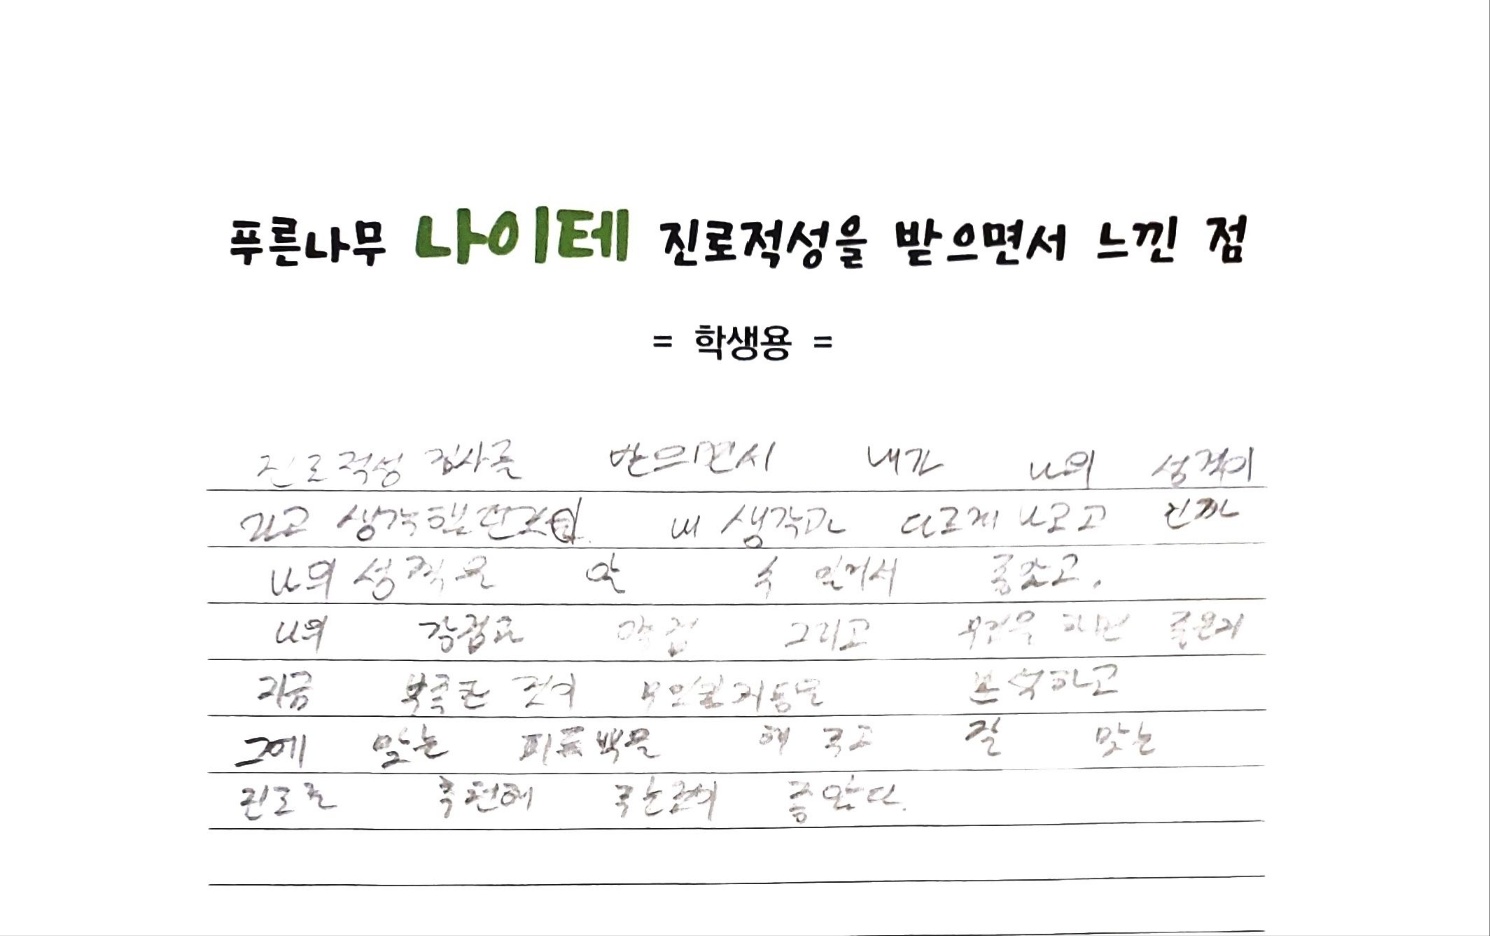 푸른나무 나이테 진로적성을 받으면서 느낀 점
= 학생용 =
진로적성 검사를 받으면서 내가 나의 성격이
라고 생각했던 내 생각과 다르게 나오고 진짜
나의 성격을 알 수 있어서 좋았고,
나의 강점과 약점 그리고 무엇을 하면 좋은지
지금 부족한 것이 무엇인지 등을 분석하고
그에 맞는 피드백을 해 주고 잘 맞는
진로를 추천해 주는것이 좋았다.